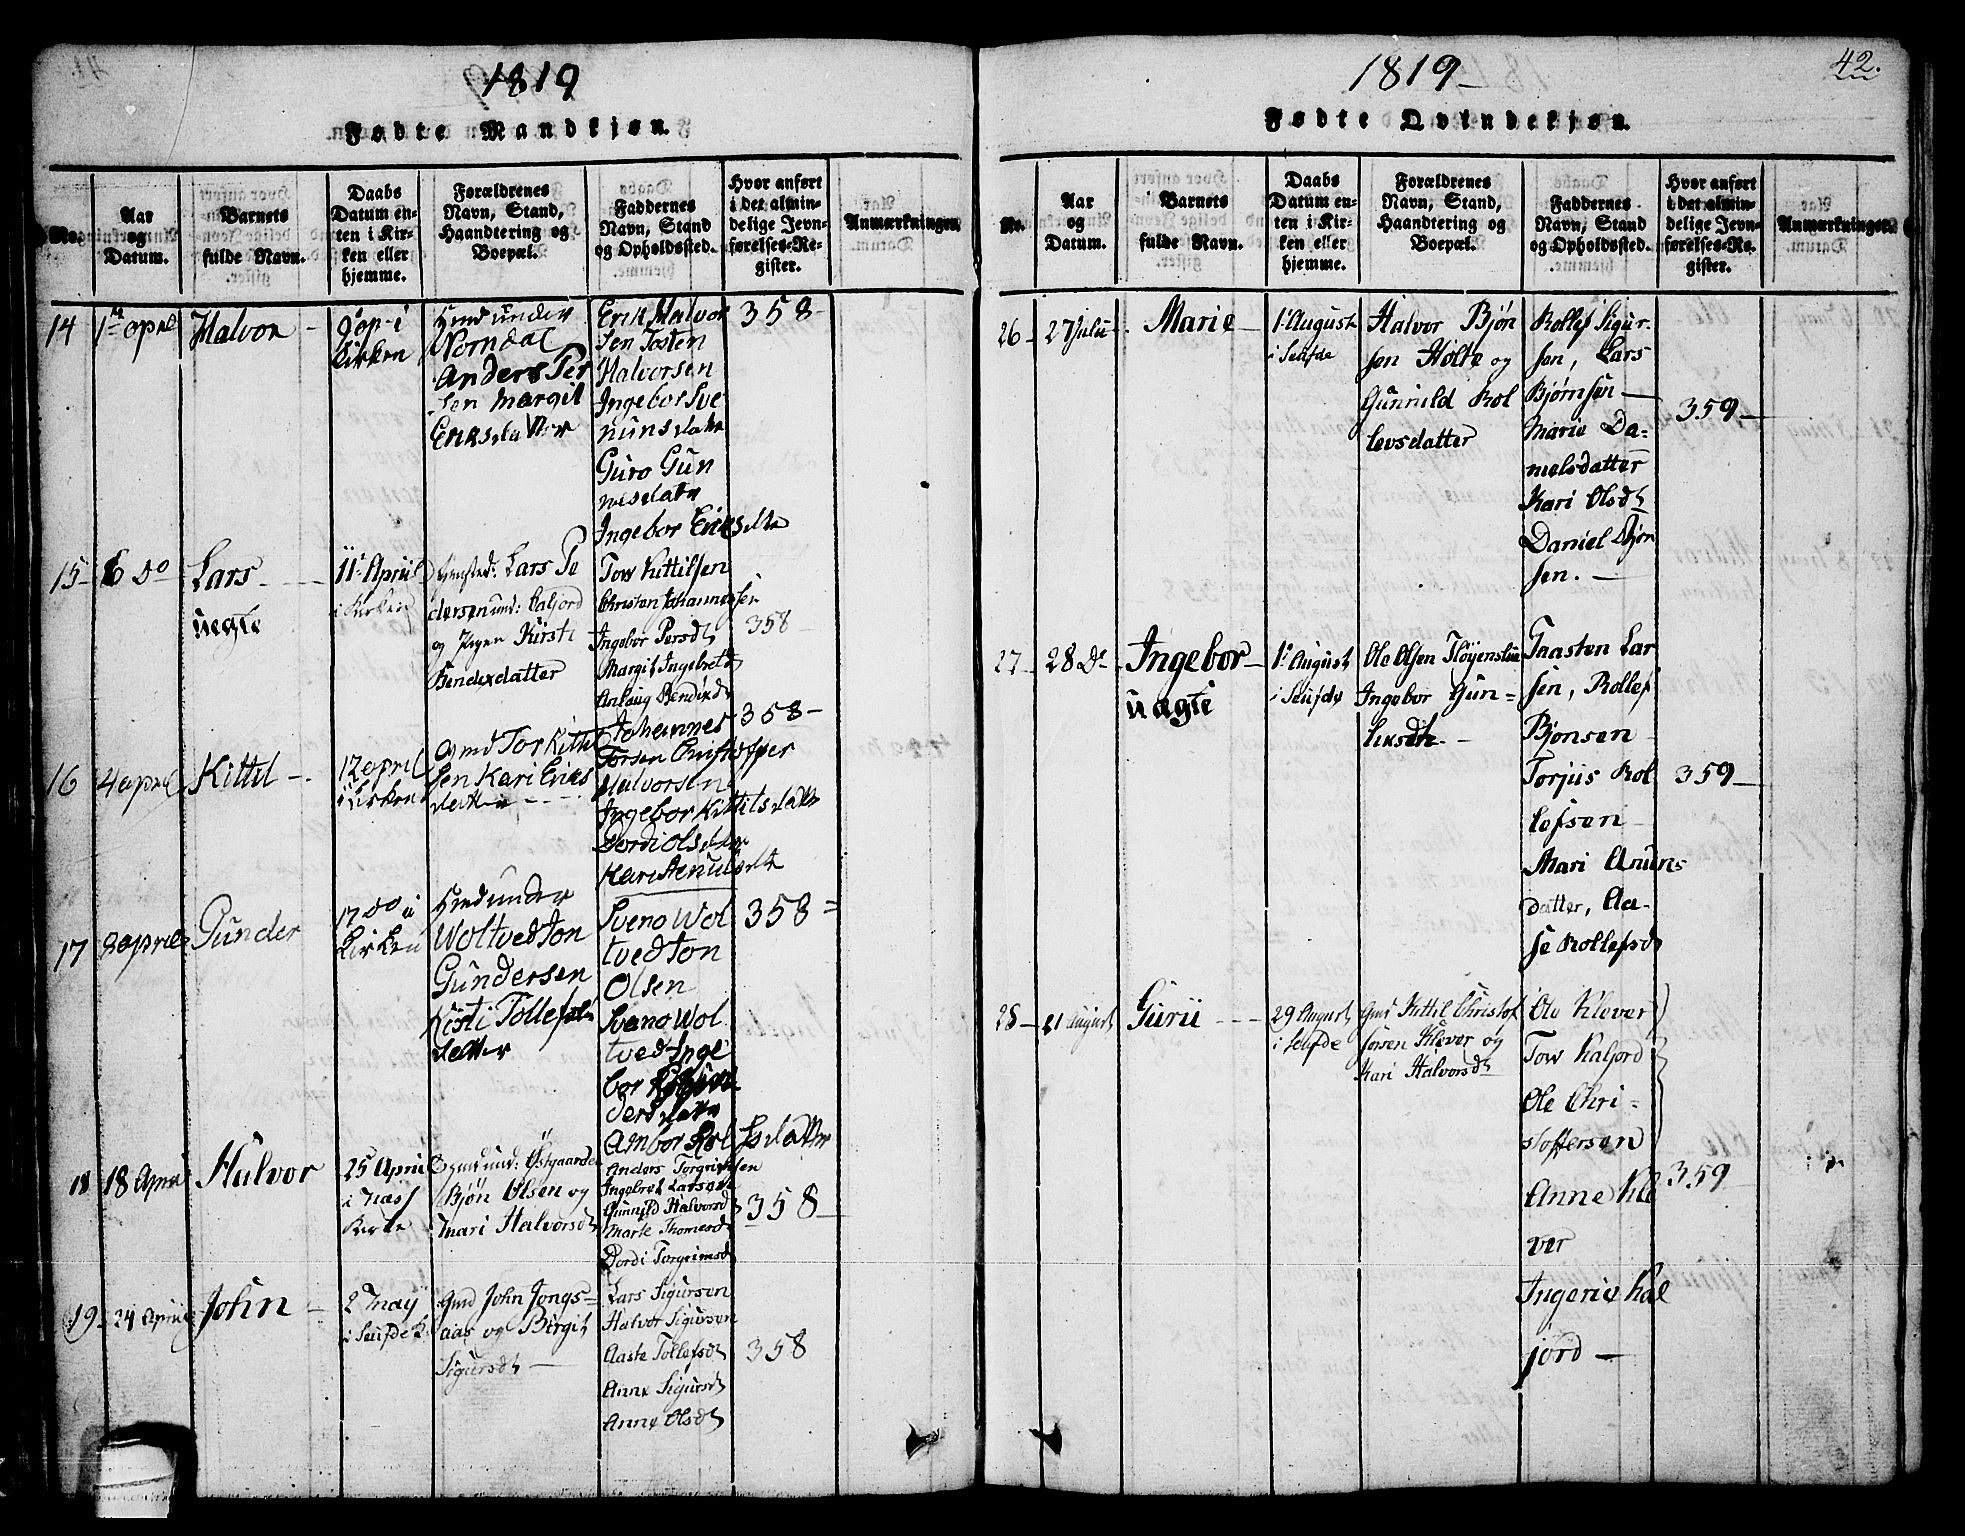 1819
Fødte Mandkjøn.
No.
Aar
og
Datum.
Barnets
fulde Navn.
Daabs
Datum en-
ten i Kir-
ken eller
hjemme.
Forældrenes
Navn, Stand,
Haandtering og
Boepæl.
Faddernes
Navn, Stand
og Opholdssted.
Hvor anført
i det almin-
delige Jevn-
førelses-Re-
gister.
Anmærkninger.
14
1 april
Halvor
9 ap i
Kirken
Hmd under
Norndal
Anders Per
sen Margit
Eriksdatter
Erik Halvor
sen Tosten
Halvorsen
Ingebor Sve
nunsdatr
Guro Gun
nesdatr
Ingebor Eriksdtr
358
15
6 Do
Lars
uegte
11 April
i Kirken
Lars Pe
dersen und: Kaljord
og Pigen Kirsti
Bendixdatter
Tow Kittilsen
Christen Johannessen
Ingebor Persdt
Margit Ingebretd
Anlaug Bendixd
358
16
4 april
Kittil
12 april
i Kirken
Gmd Tor Kittil
sen Kari Eriks
datter
Johannes
Torsen Christoffer
Halvorsen
Ingebor Kittilsdattr
Dordi Olsdatr
Kari
358
17
8 april
Gunder
12 do i
Kirken
Hmd under
Woltved Jon
Gundersen
Kisti Tollefs
datter
Sveno Wol
tved Jon
Olsen
Sveno Wol
tved Inge
bor
dersdatr
Ambor Rolfsdattr
358
18
18 April
Halvor
25 April
i Næss
Kirke
Gmd und: Østgaarde
Bjøn Olsen og
Mari Halvorsdt
Anders Torgrimsen
Ingebret Larsen
Gunnild Halvorsd
Marte Thomesd
Dordi Torgrimsd
358
19
24 April
John
2 May
i Seufde K
Gmd John Jongs=
aas og Birgit
Sigursdt
Lars Sigursen
Halvor Sigursen
Aaste Tollefsdt
Anne Sigursdt
Anne Olsdt
358
1819
42.
Fødte Qvindekjøn.
No.
Aar
og
Datum.
Barnets
fulde Navn.
Daabs
Datum en-
ten i Kir-
ken eller
hjemme.
Forældrenes
Navn, Stand,
Haandtering og
Boepæl.
Faddernes
Navn, Stand
og Opholdssted.
Hvor anført
i det almin-
delige Jevn-
førelses-Re-
gister.
Anmærkninger.
26
27 Julii
Marie
1 August
i Seufde
Halvor Bjøn
sen Holte og
Gunnild Rol
levsdatter
Rollef Sigur-
sen, Lars
Bjørnsen
Marie Da=
nielsdatter
Kari Olsdt
Daniel Bjøn
sen.
359
27
28 Do
Ingebor
uægte
1 August
i Seufde
Ole Olsen Fløyenstue
Ingebor Gun=
leksdt
Taasten Lar
sen, Rollef
Bjønsen
Torjus Rol
lofsen
Mari Anuns
datter, Aa-
se Rollefsdt
359
28
21 August
Guru
29 August
i Seufde
Gmd Kittil Christof
forsen Klever og
Kari Halvorsdt
Ole Klever
Tow Kaljord
Ole Chri-
stoffersen
Anne Kle
ver
Ingerie Kal
jord
359